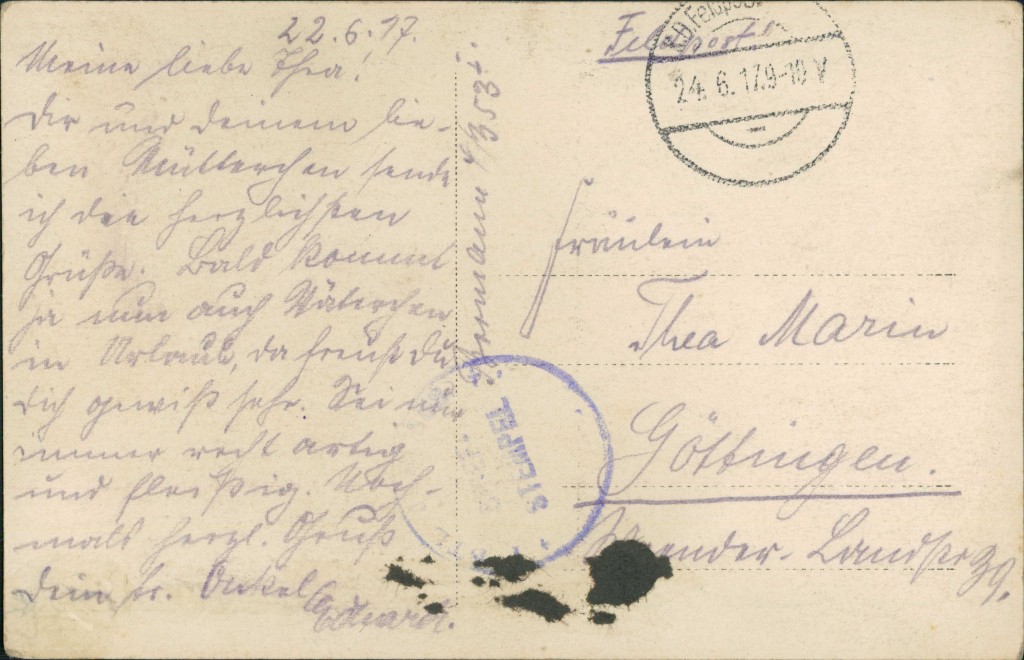 22.6.17.
Meine liebe Thea!
Dir und deinem lie-
ben Mütterchen sende
ich die herzlichsten
Grüße. Bald kommt
ja nun auch Väterchen
in Urlaub, da freust Du
Dich gewiß sehr. Sei nur
immer recht artig
und fleißig. Noch-
mals herzl. Gruß
Dein tr. Onkel
Eduard.
Feldpost
K.D. Feldpost
24. 6. 17 9-10 V
Fräulein
Thea Marin
Göttingen.
Weender-Landstr 39.
STEMPEL